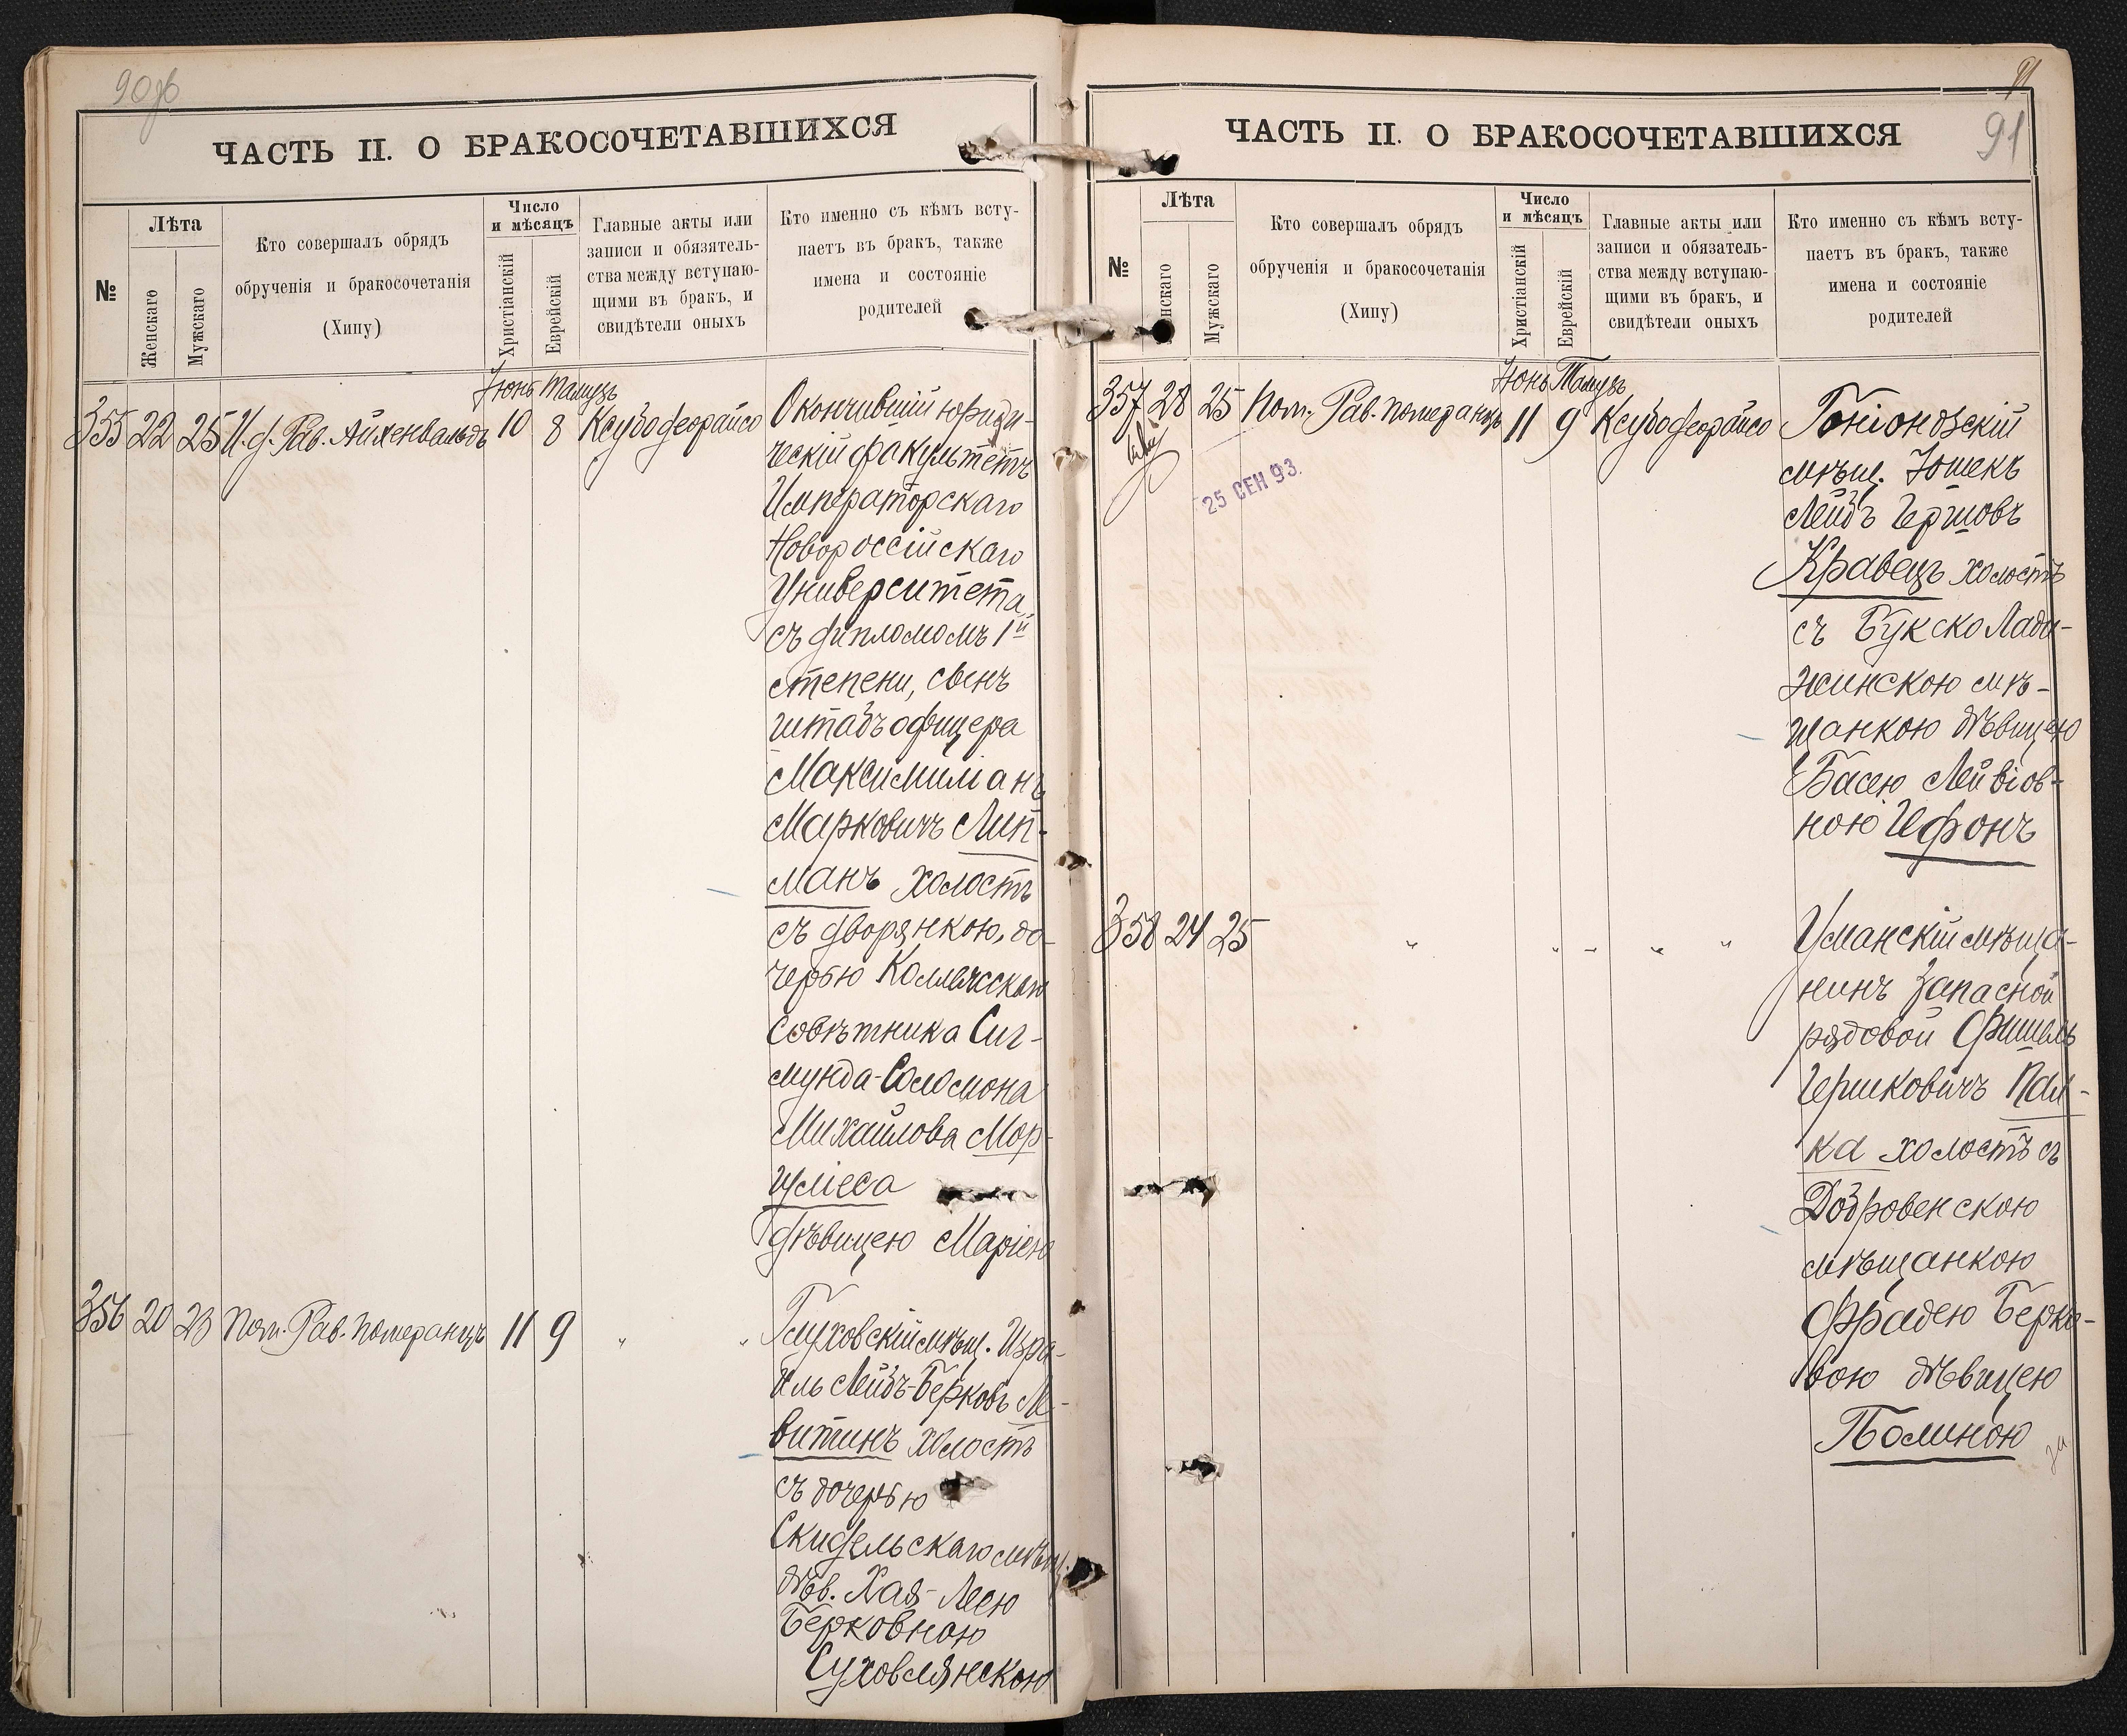 90об
ЧАСТЬ II. О БРАКОСОЧЕТАВШИХСЯ
№
Лѣта
Женскаго
Мужскаго
Кто совершалъ обрядъ
обрученія и бракосочетанія
(Хипу)
Число
и мѣсяцъ
Христіанскій
Еврейскій
Главные акты или
записи и обязатель-
ства между вступаю-
щими въ бракъ, и
свидѣтели оныхъ
Кто именно съ кѣмъ всту-
паетъ въ бракъ, также
имена и состояніе
родителей
Іюнь Тамузъ
355 22 25 И.д. Рав. Айхенвальдъ 10 8 Ксубо деорайсо Окончившій юриди-
ческій факультетъ
Императорскаго
Новороссійскаго
Университета,
съ дипломомъ 1й
степени, сынъ
штабъ офицера
Максимиліанъ
Марковичъ Лип-
манъ холостъ
съ дворянкою, до-
черью Коллежскаго
Совѣтника Сиг-
мунда-Соломона
Михайлова Мор-
гуліеса
дѣвицею Маріею
356 20 23 Пом. Рав. Померанцъ 11 9 " " Глуховскій мѣщ. Изра-
иль Лейбъ-Берковъ Ле-
витинъ холостъ
съ дочерью
Скидельскаго мѣщ.
дѣв. Хая-Лею
Берковною
Суховлянскою
91
91
ЧАСТЬ II. О БРАКОСОЧЕТАВШИХСЯ
№
Лѣта
нскаго
Мужскаго
Кто совершалъ обрядъ
обрученія и бракосочетанія
(Хипу)
Число
и мѣсяцъ
Христіанскій
Еврейскій
Главные акты или
записи и обязатель-
ства между вступаю-
щими въ бракъ, и
свидѣтели оныхъ
Кто именно съ кѣмъ всту-
паетъ въ бракъ, также
имена и состояніе
родителей
Іюнь Тамузъ
357 28 25 Пом. Рав. Померанцъ 11 9 Ксубо деорайсо Гоніондзскій
25 СЕН 93.
мѣщ. Іошекъ
Лейбъ Гершовъ
Кравецъ холостъ
съ Букско Лади-
жинскою мѣ-
щанкою дѣвицею
Басею Лейвіов-
ною Ифонъ
358 24 25 " " - " " Уманскій мѣща-
нинъ запасной
рядовой Фишель
Гершковичъ Пал-
ка холостъ съ
Добровенскою
мѣщанкою
Фрадею Берко-
вою дѣвицею
Болиною